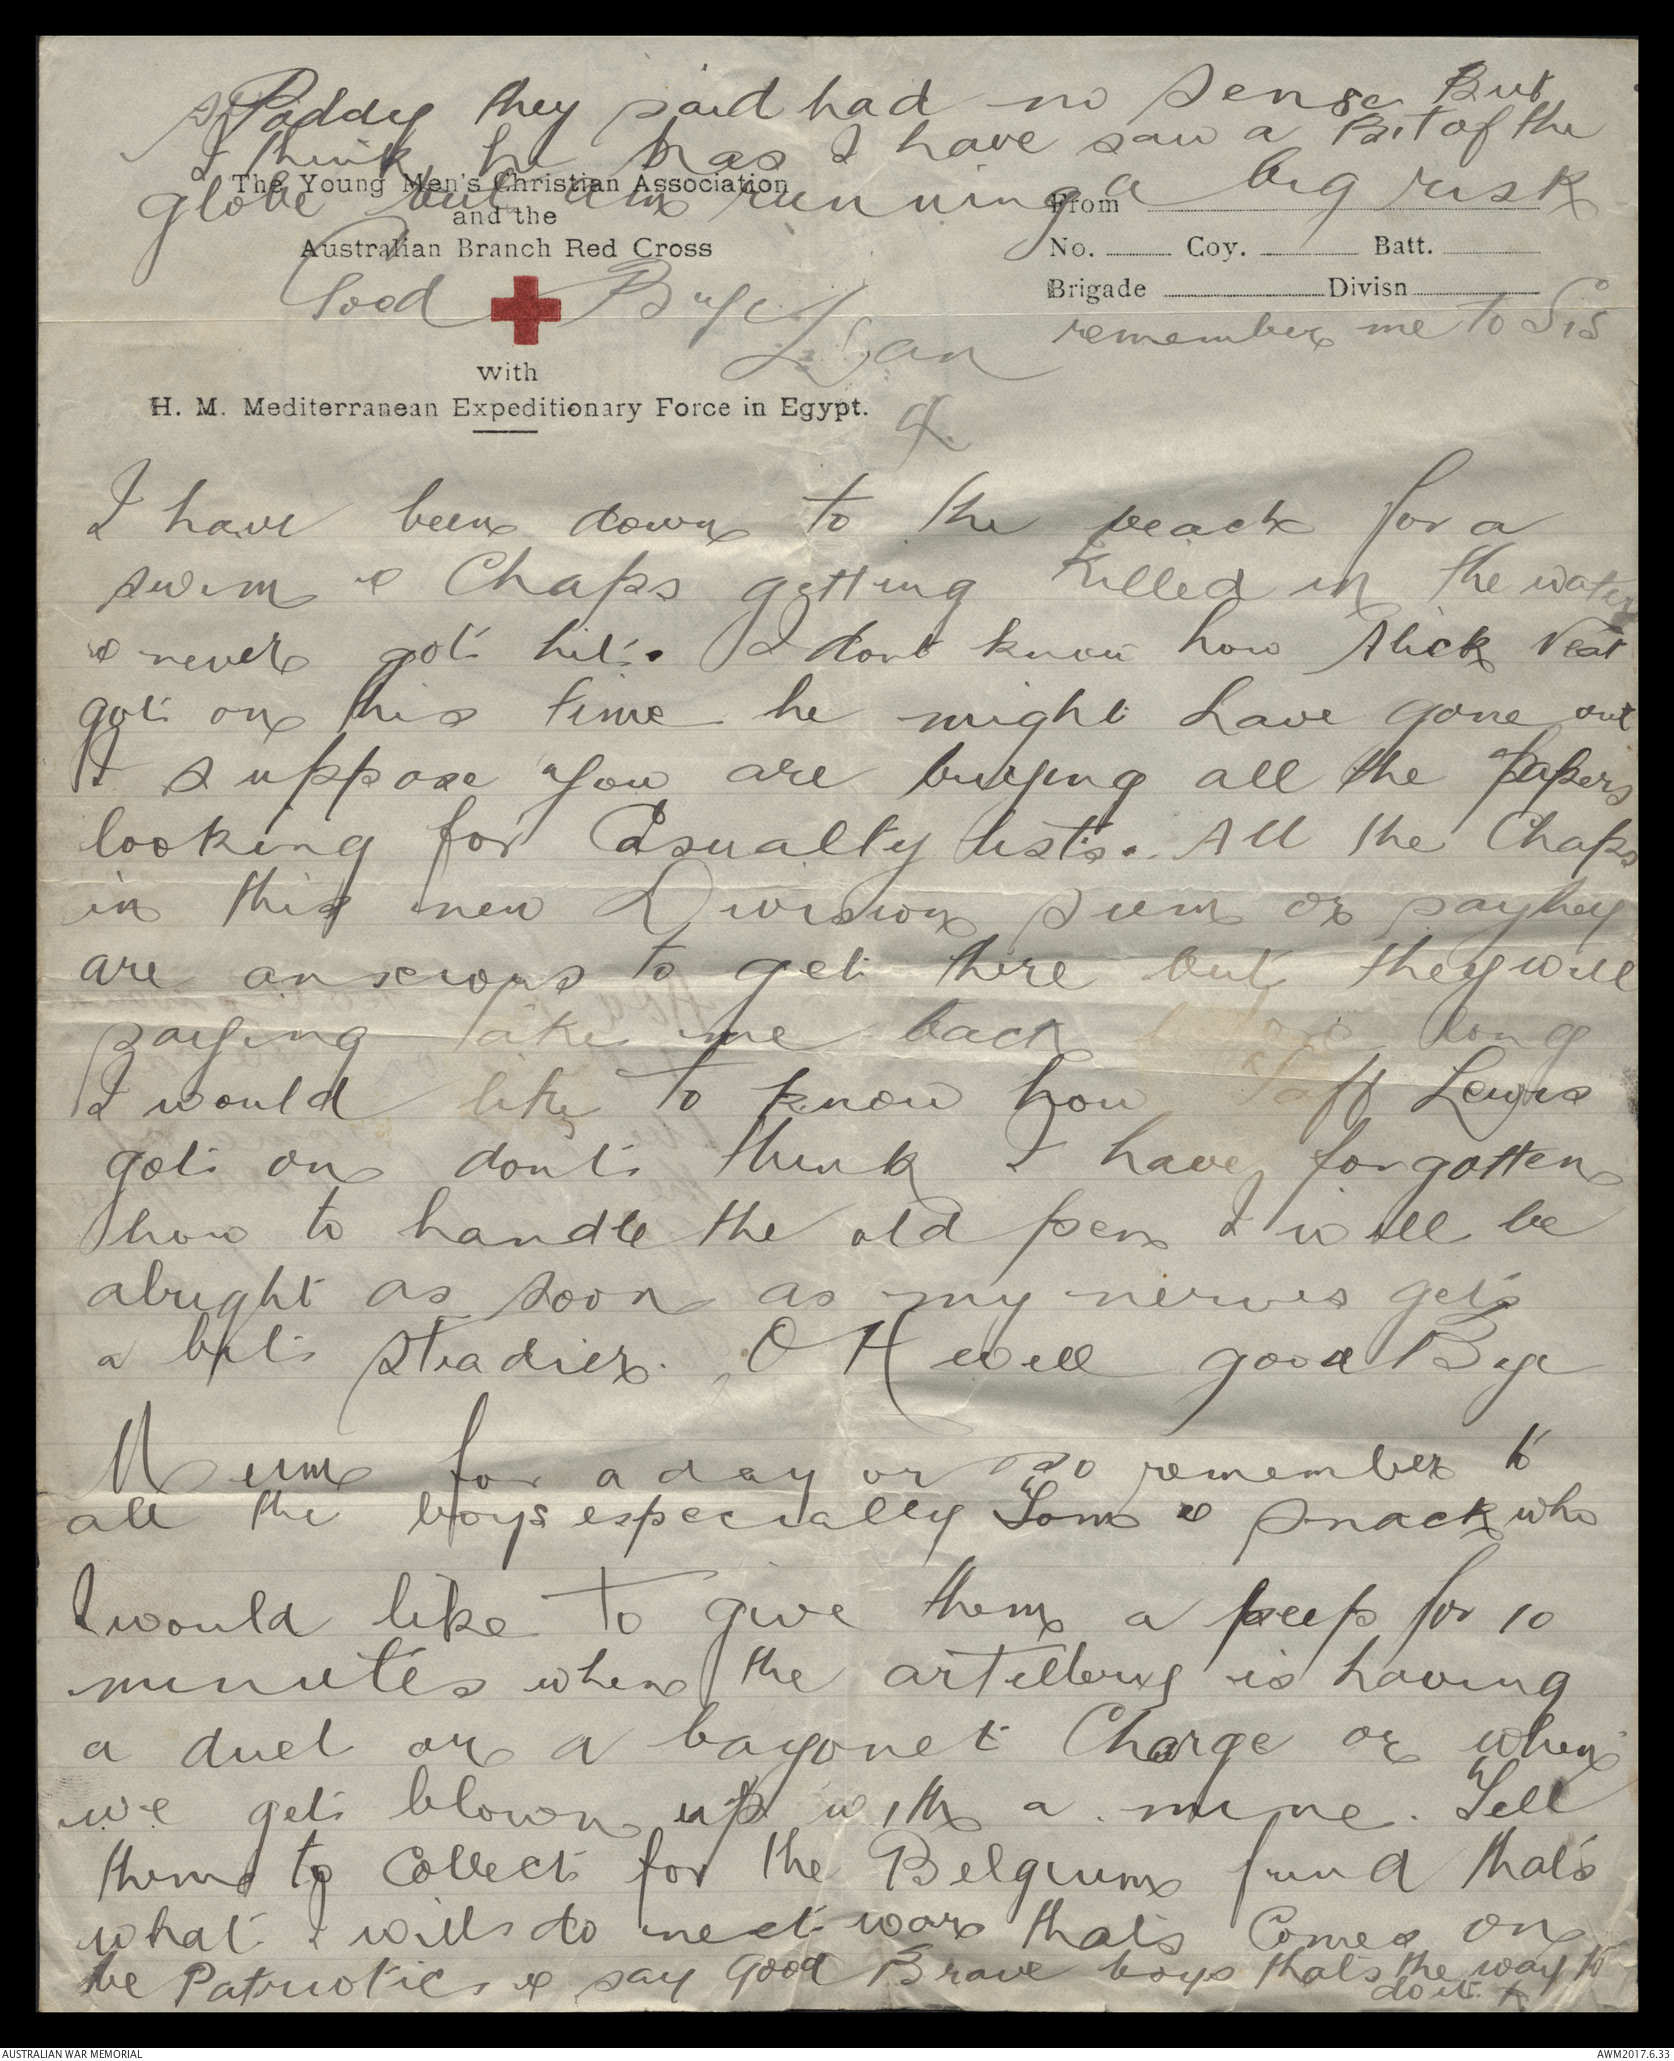 Paddy they said had no sense But
I think he has I have saw a Bit of the
globe but am running a big risk
The Young Men's Christian Association
and the
Australian Branch Red Cross
From
No. Coy. Batt.
Brigade Divisn
Good Bye
Dan
remember me to Sis
with
H. M. Mediterranean Expeditionary Force in Egypt.
I have been down to the beach for a
swim & Chaps getting killed in the water
& never got hit. I dont know how Alick Neat
got on this time he might have gone out
I suppose you are buying all the papers
looking for Casualty lists. All the Chaps
in this new Division seem or say they
are anxious to get there but they will
saying take me back before long
I would like to know how Taff Lewis
got on dont think I have forgotten
how to handle the old pen I will be
alright as soon as my nerves gets
a bit steadier. O H well good Bye
Mum for a day or so remember to
all the boys especially Tom & Snack who
I would like to give them a peep for 10
minutes when the artillery is having
a duel or a bayonet Charge or when
we get blown up with a mine. Tell
them to Collect for the Belgium fund thats
what I will do next war thats Comes on
be Patriotic & say good Brave boys thats the way to
do it x